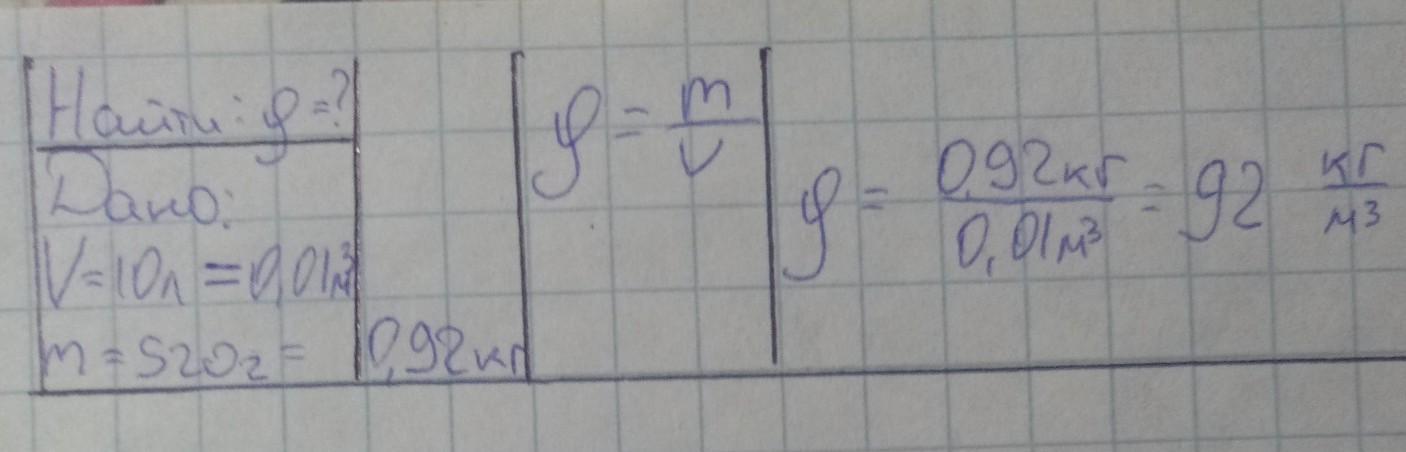 Найти: ρ=?
Дано:
V=10л=0,01м³
m=920г= 0,92кг
ρ = m/V
ρ = 0,92кг/0,01м³ = 92 кг/м³